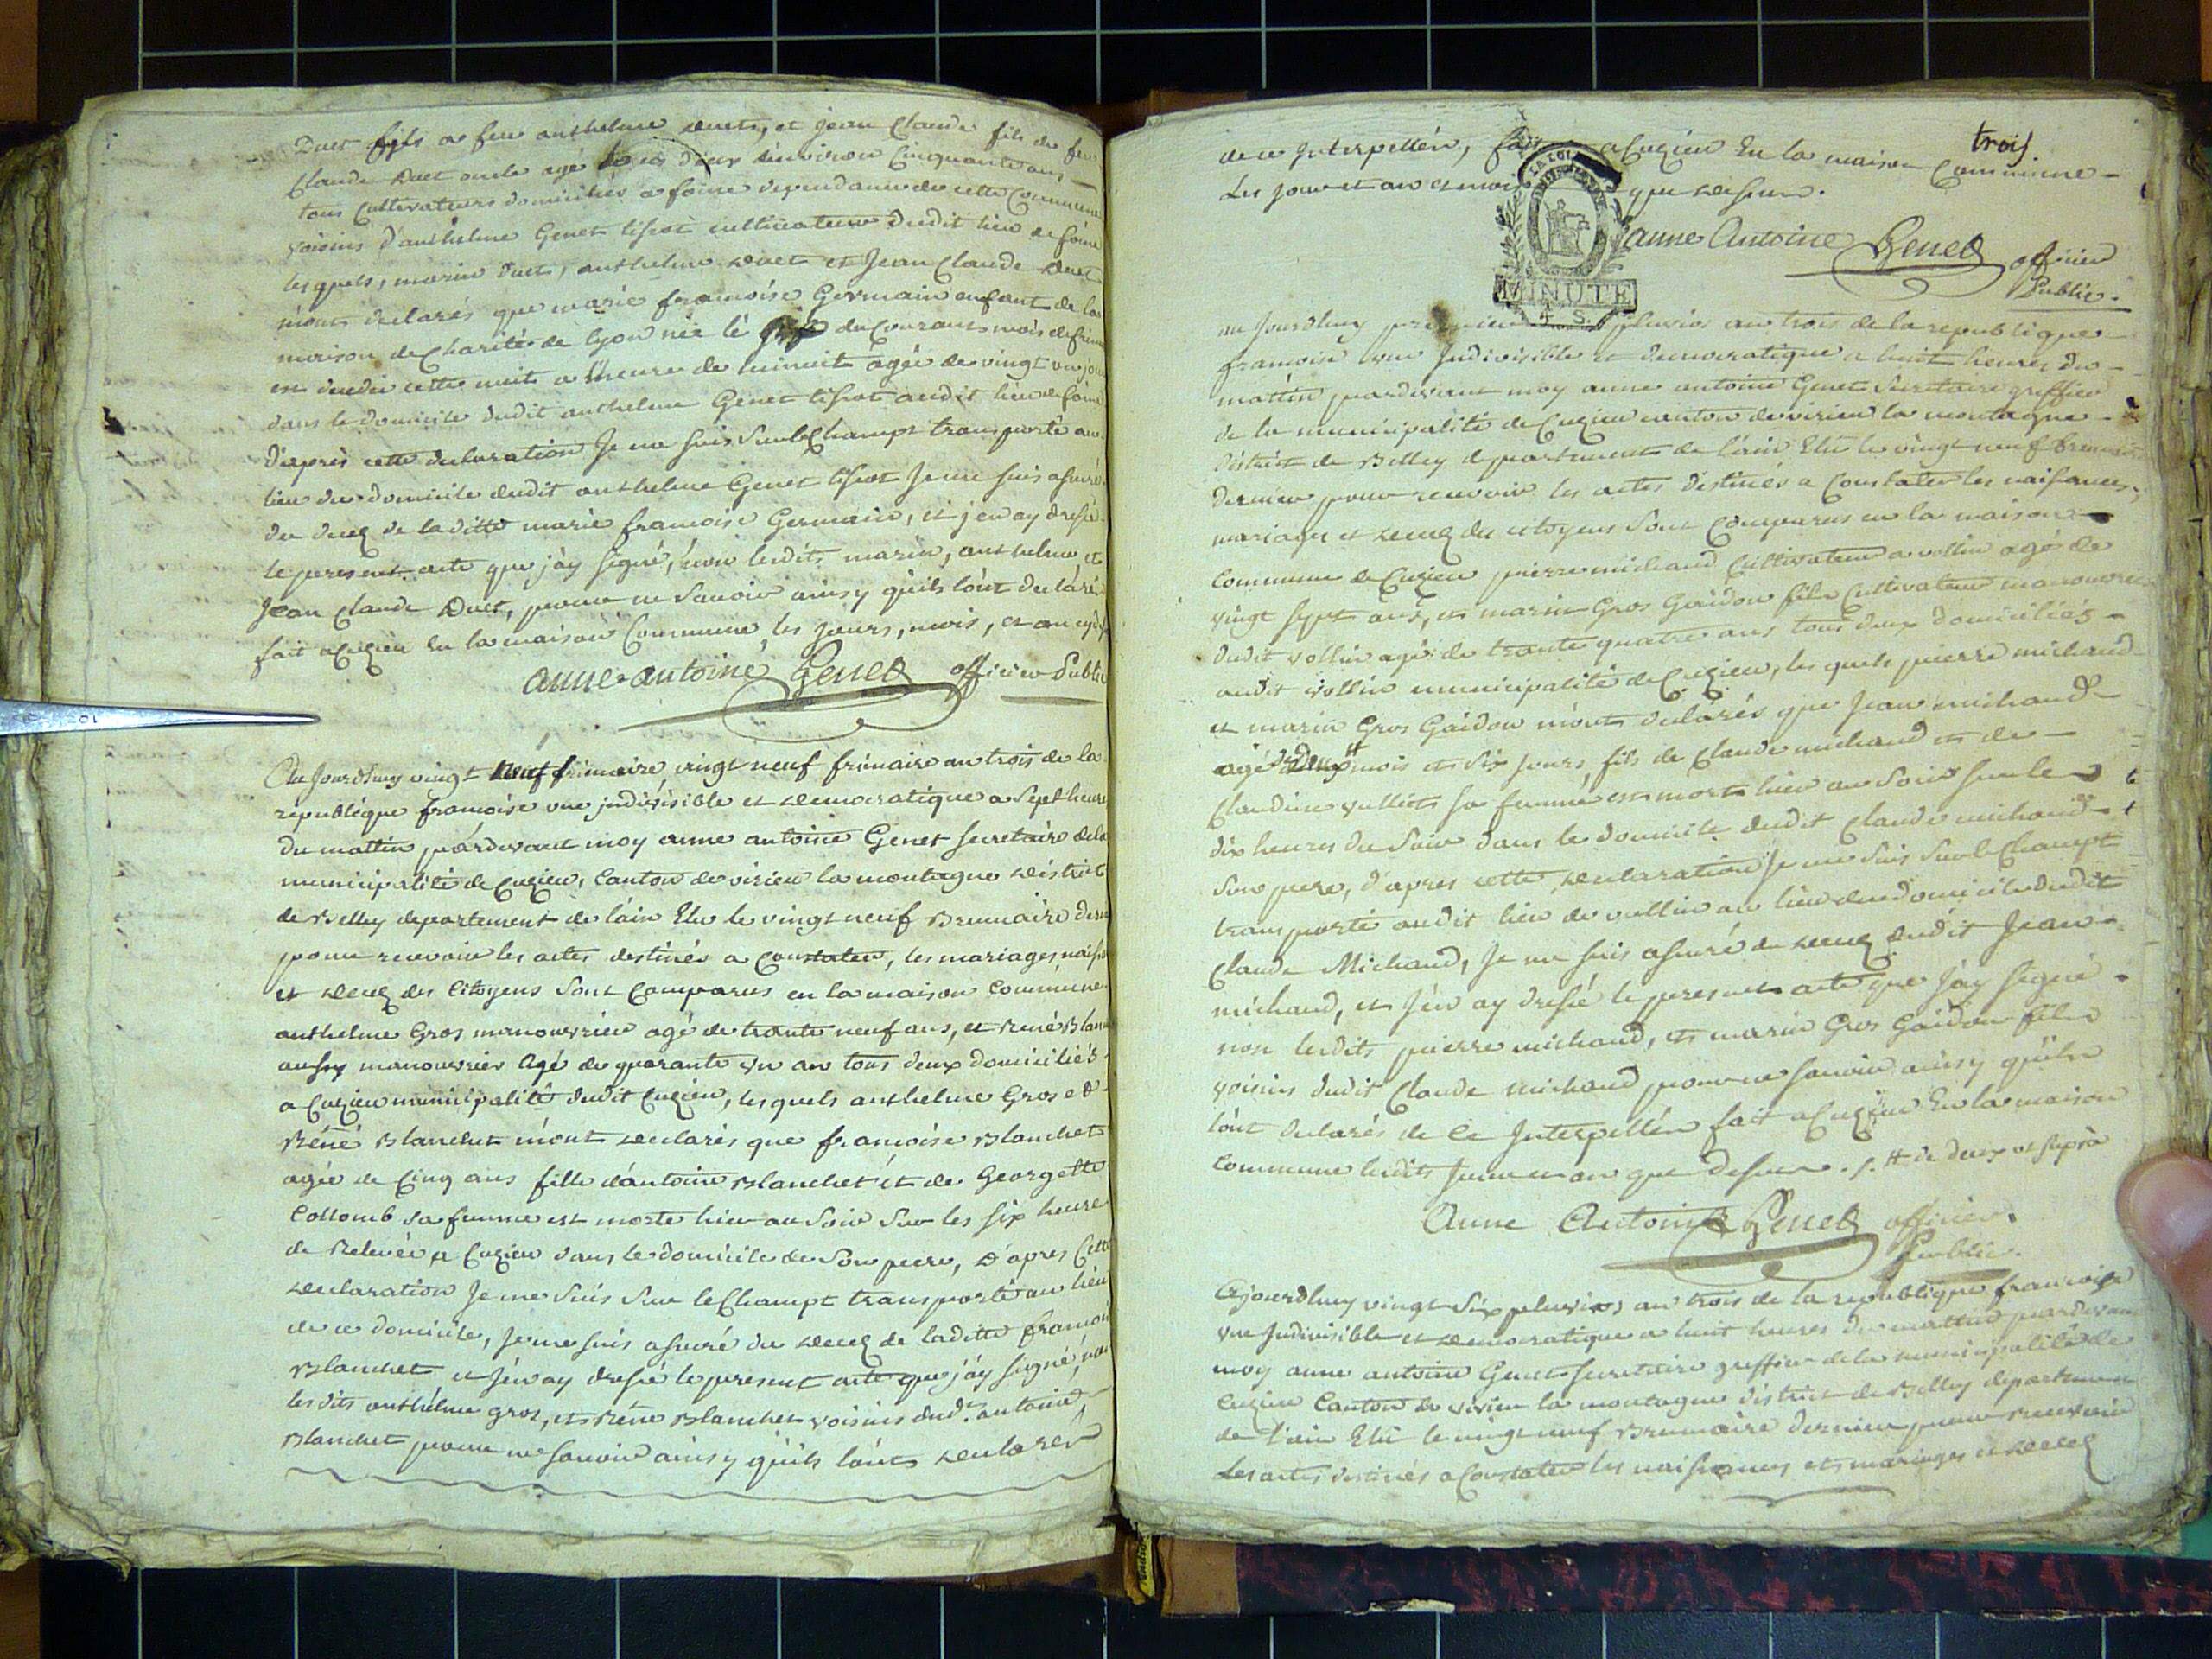 Duet fils a feu anthelme duet, et jean Claude fils de feu
Claude Duet oncle agé tous deux denviron Cinquante ans
tous Cultivateurs domiciliés a foine dependance de cette Commune
voisins d'anthelme Genet tissot cultivateur dudit lieu de foine
lesquels, marin duet, anthelme duet et Jean Claude duet
m'ont declarés que marie francoise Germain enfant de la
maison de Charité de lyon née le du Courant mois de frim
est decedée cette nuit a lheure de minuit agée de vingt un jour
dans le domicile dudit anthelme Genet tissot audit lieu de foine
d'après cette declaration Je me suis sur le Champt transporté au
lieu du domicile dudit anthelme Genet tissot Je me suis assuré
du decez de laditte marie francoise Germain, et j'en ay dressé
le present acte que j'ay signé, non lesdits marin, anthelme, et
Jean Claude Duet, pour ne savoir ainsy qu'ils l'ont declaré
fait a Cuzieu En la maison Commune, les jours, mois, et an
anne antoine Genet officier Public
Aujourdhuy vingt neuf frimaire vingt neuf frimaire an trois de la
republique francoise une jndivisible et democratique a Sept heure
du mattin pardevant moy anne antoine Genet secretaire de la
municipalité de Cuzieu, Canton de virieu la montagne district
de Belley departement de l'ain Elu le vingt neuf Brumaire der
pour recevoir les actes destinés a Constater, les mariages, naiss
et decez des Citoyens sont Comparus en la maison Commune
anthelme Gros manouvrier agé de trante neuf ans, et René Blan
aussy manouvrier agé de quarante un an tous deux domiciliés
a Cuzieu municipalité dudit Cuzieu, lesquels anthelme Gros et
Réné Blanchet m'ont declarés que francoise Blanchet
agée de Cinq ans fille d'antoine Blanchet et de Georgette
Collomb sa femme est morte hier au soir sur les six heure
de Relevée a Cuzieu dans le domicile de son pere, D'apres Cette
declaration Je me suis sur le Champt transporté au lieu
de ce domicile, Je me suis assuré du decez de laditte francoi
Blanchet et J'en ay dressé le present acte que j'ay signé, non
les dits anthelme gros, et Réné Blanchet voisins dud.t antoine
Blanchet pour ne savoir ainsy quils l'onts declarer
trois.
de ce Jnterpellér, fait a Cuzieu En la maison Commune
Les jour et an et mois que dessus.
LA LOI
MINUTE
4 S.
anne Antoine Genet officier
Public.
aujourdhuy premier pluvios an trois de la republique
francoise une Jndivisible et democratique a huit heures du
mattin pardevant moy anne antoine Genet Secretaire greffier
de la municipalité de Cuzieu canton de virieu la montagne
District de Belley departement de l'ain Elu le vingt neuf brumaire
dernier pour recevoir les actes destinés a Constater les naissances,
mariages et decez des citoyens sont Comparus en la maison
Commune de Cuzieu pierre michaud Cultivateur a vollin agé de
vingt sept ans, et marin Gros Gaidon fils Cultivateur manouvrier
dudit vollin agé de trante quatre ans tous deux domiciliés
audit vollin municipalité de Cuzieu, les quels pierre michaud
et marin Gros Gaidon m'onts declarés que Jean michaud
agé de Deux mois et six Jours, fils de Claude michaud et de
Claudine vulliets sa femme est morts hier au soir sur les
dix heures du soir dans le domicile dudit Claude michaud
son pere, d'apres cette declaration Je me suis sur le Champt
transporté audit lieu de vullin au lieu du domicile dudit
Claude Michaud, Je me suis assuré du decez dudit Jean
michaud, et J'en ay dressé le present acte que J'ay signé
non lesdits pierre michaud, et marin Gros Gaidon fils
voisins dudit Claude michaud pour ne savoir ainsy quils
l'ont declarés de Ce Jnterpellér fait a Cuzieu En la maison
Commune lesdits Jour et an que dessus. /. # de deux
Anne Antoine Genet officier
Public.
Ajourdhuy vingt six pluvios an trois de la republique francoise
une Jndivisible et democratique a huit heures du mattin pardevant
moy anne antoine Genet secretaire greffier de la municipalité de
Cuzieu Canton de virieu la montagne District de Belley departement
de l'ain Elu le vingt neuf Brumaire dernier pour recevoir
Les actes destinés a Constater les naissances et mariages et decez